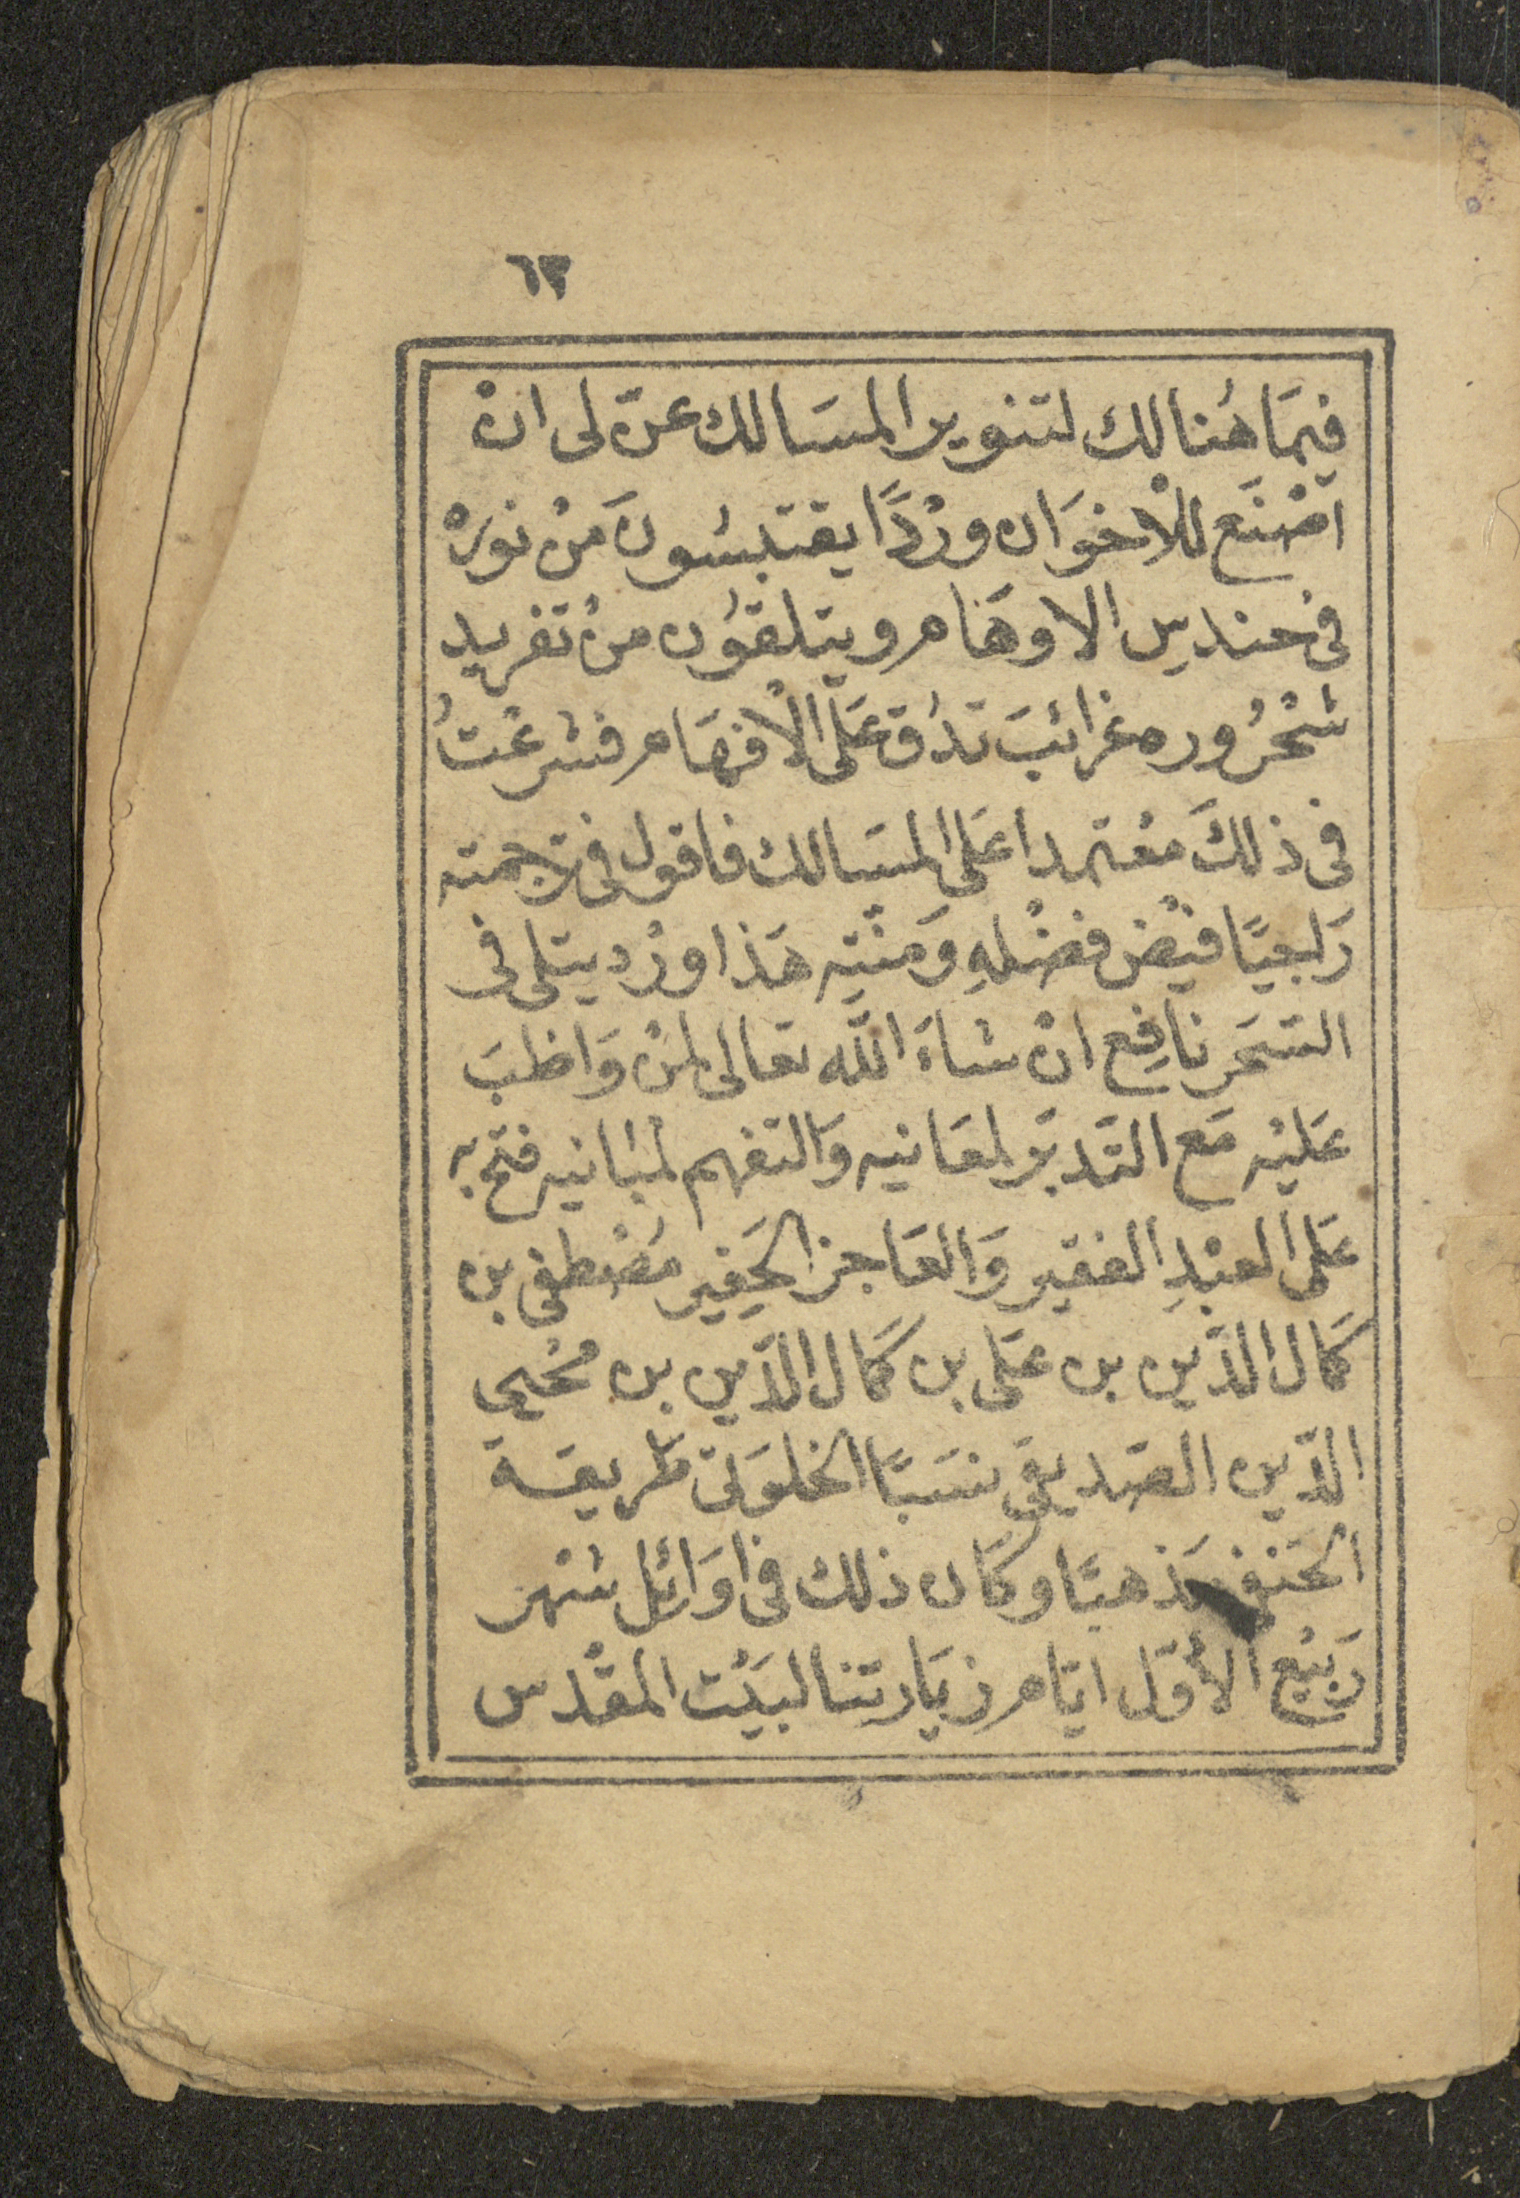 ٦٣
فيمَا هُنالك لتنوير المسَالك عنّ لى انْ
اصْنَع للاخوَان ورْدًا يقتبسُونَ مِنْ نورْه
فى حنديس الاوهَام ويتلقوْن منْ تغريد
شحْرُوره غرائبَ تدُق عَلى الافهَام فشرعْتُ
فى ذلكَ معْتمدا عَلى المسَالك فاقول فى ترجمته
رَاجيًا فيْض فضْلهِ وَمنّتِه هَذا ورْد يتلى فى
السَحَر نافِع انْ شاءَ اللّه تعالى لمنْ وَاظبَ
عَليْه مَع التَدبّر لمعَانيه وَالتفهم لمبَانيه فتح به
عَلى العبْدِ الفقير وَالعَاجز الحَقير مصْطفى بن
كمَال الدّين بن عَلى بن كمَال الدّين بن محْيى
الدّين الصّديقى نسَبًا الخلوَتى طريقة
الحَنفى مَذهبًا وكان ذلك فى اوَائل شهْر
رَبيْع الأوّل ايّام زيَارتنا لبَيْت المقْدس